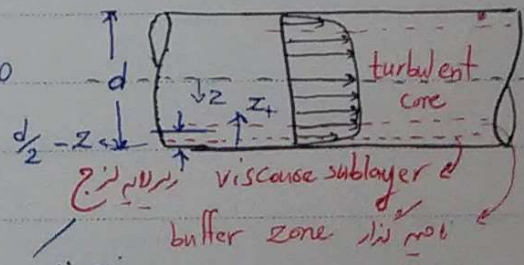 0
d
↓z
z+
d/2 - z
turbulent
core
زیرلایه لزج
viscouse sublayer
buffer zone
ناحیه گذار